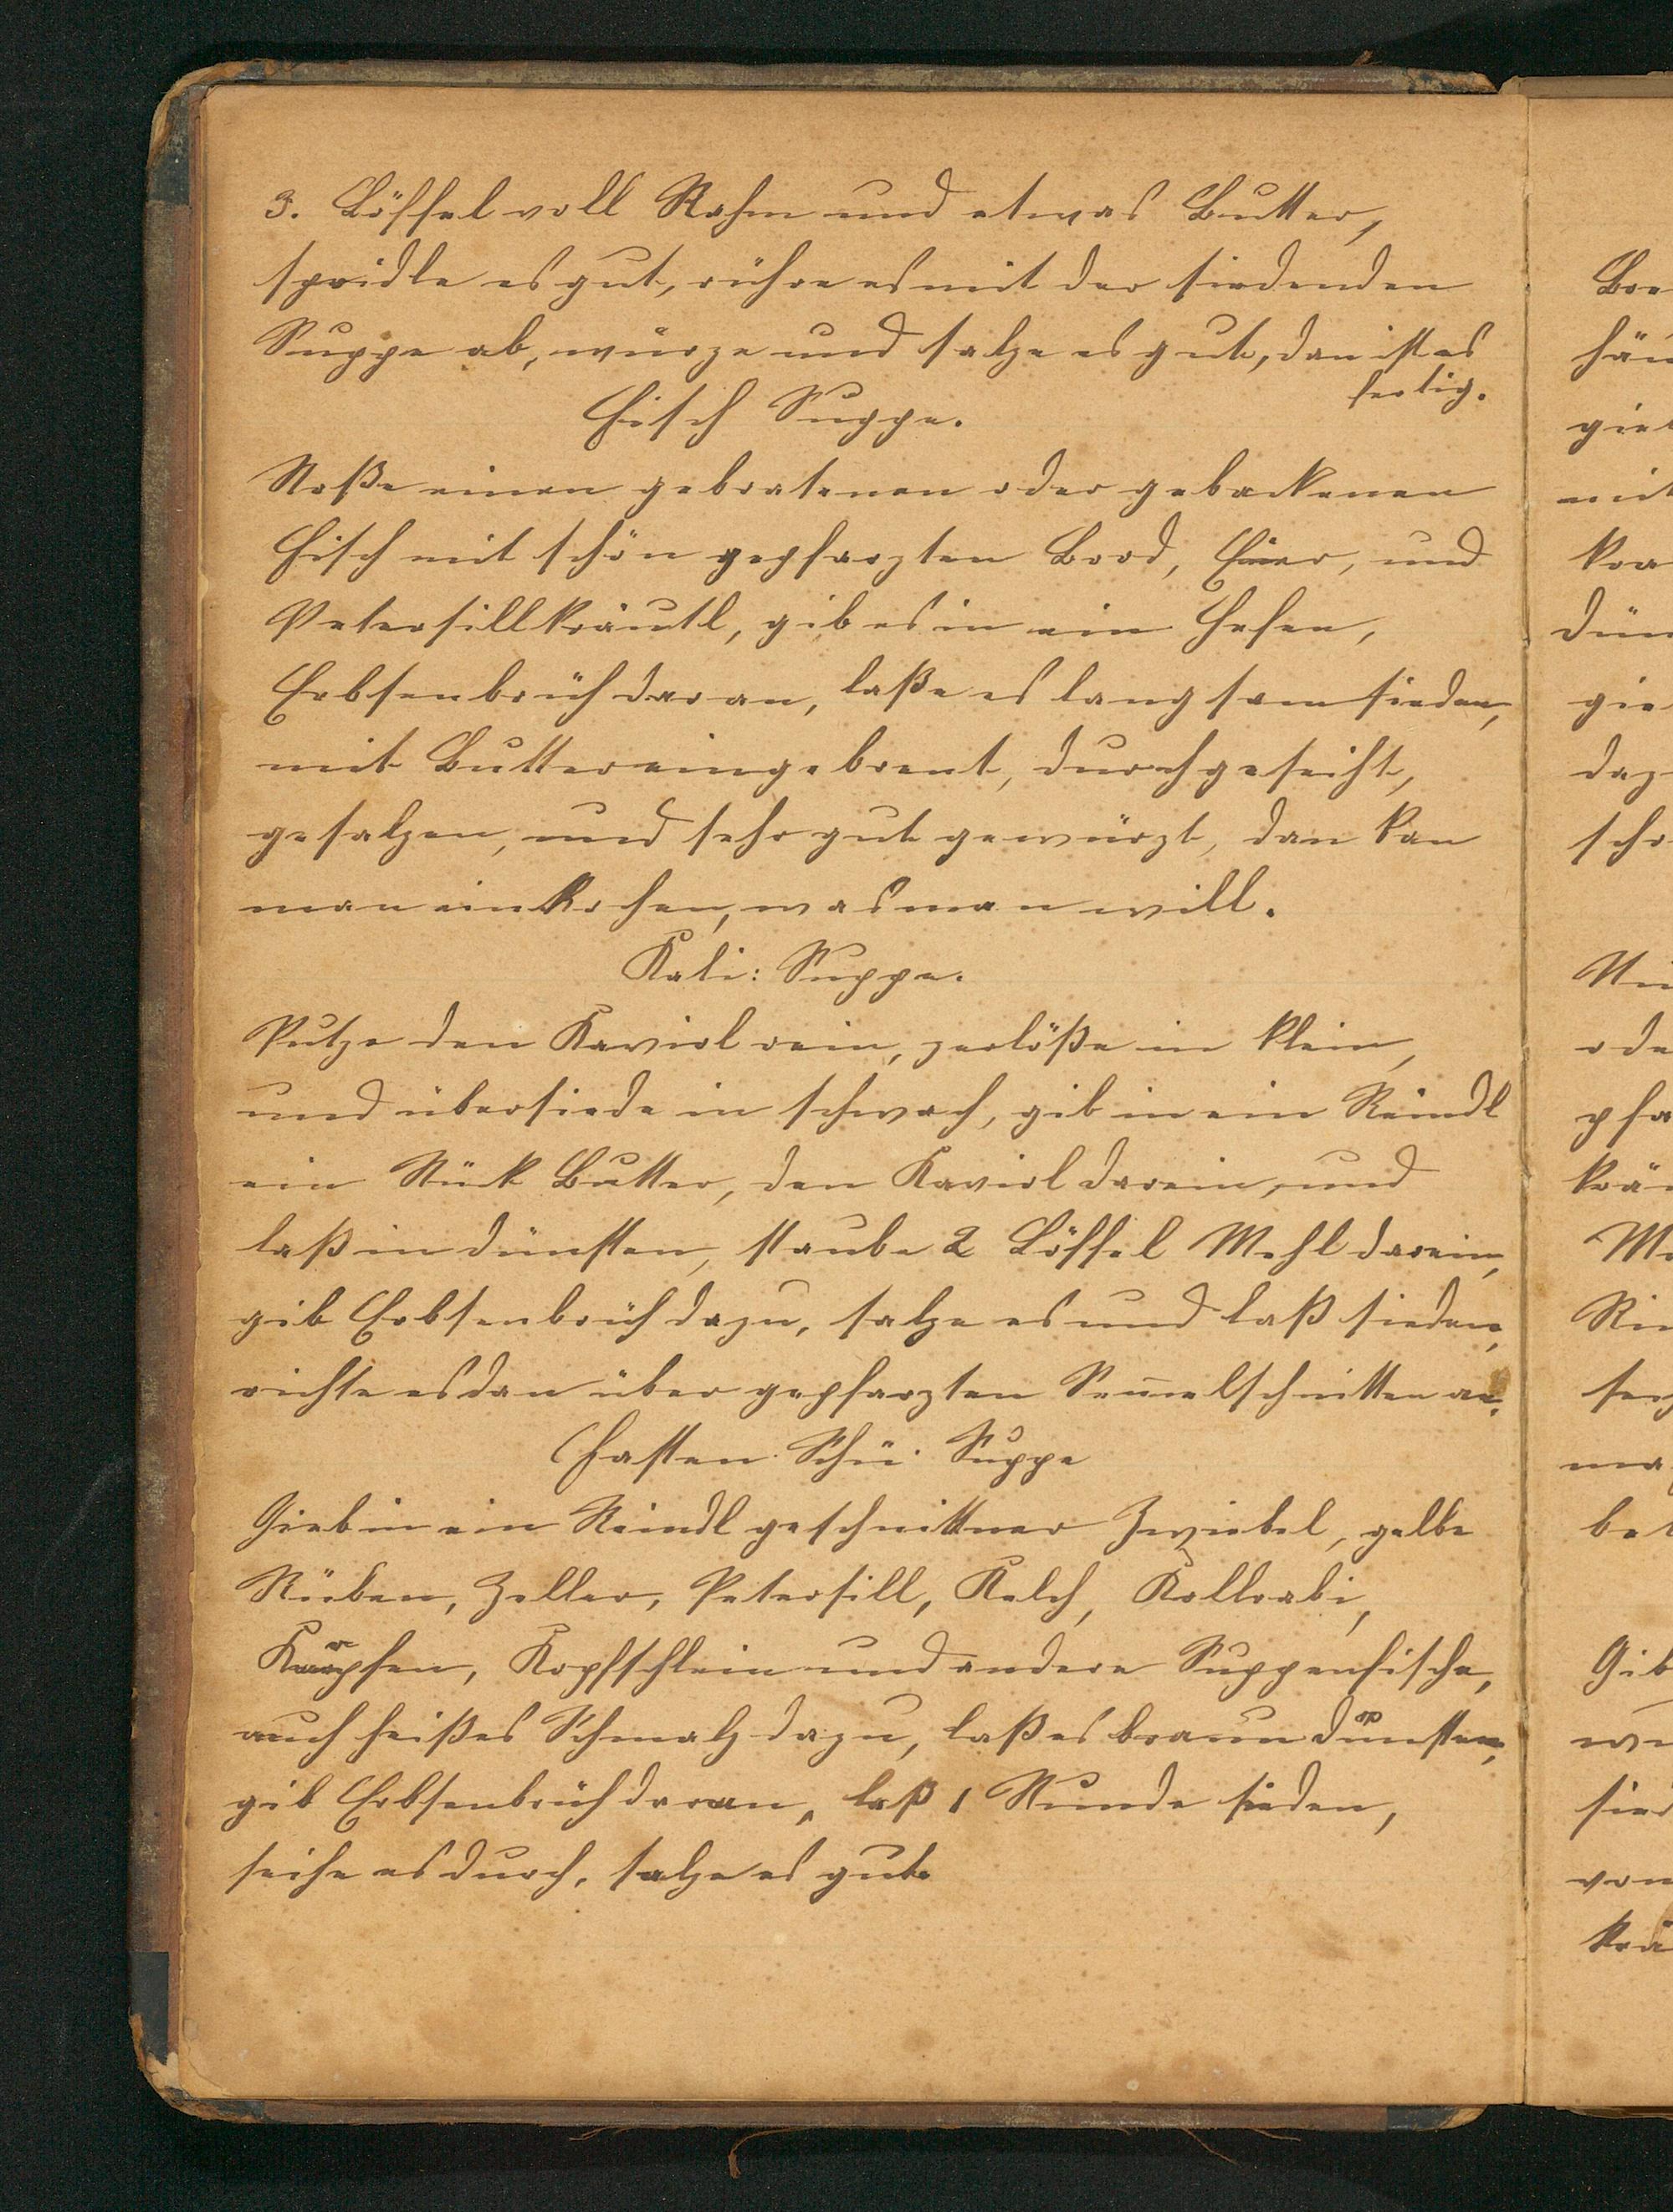 3. Löffel voll Rahm und etwas Butter,
spridle es gut, rühre es mit der siedenden
Suppe ab, würze und salze es gut, dan ist es
fertig.
Fisch Suppe.
Stoße einen gebratenen oder gebackenen
Fisch mit schön gepfarzten Brod, Eier, und
Petersillkräutl, gib es in ein Hefen,
Erbsenbrüh daran, laße es langsam sieden,
mit Butter eingebrent, durchgeseiht,
gesalzen, und sehr gut gewürzt, dan kan
man einkochen, was man will.
Kali: Suppe.
Putze den Kaviol rein, zerlöße in klein,
und übersiede in schwach, gib in ein Reindl
ein Stück Butter, den Kaviol darein, und
laß in dünsten, staube 2 Löffel Mehl darein,
gib Erbsenbrüh dazu, salze es und laß sieden,
richte es dan über gepfarzten Sem̄elschnitten an.
Fasten Schü Suppe
Gieb in ein Reindl geschnittner Zwiebel, gelbe
Rüben, Zeller, Petersill, Kelch, Kollrabi,
Karpfen, Kopfschlein und andere Suppenfische,
auch heißes Schmalz dazu, laß es braun dünsten,
gib Erbsenbrüh daran, laß 1 Stunde sieden,
seihe es durch, salze es gut.
Bro
häu
gieb
mit
kra
dün
gie
daz
schr
ode
pfa
krä
Me
Rin
ma
Gib
sied
von
krä